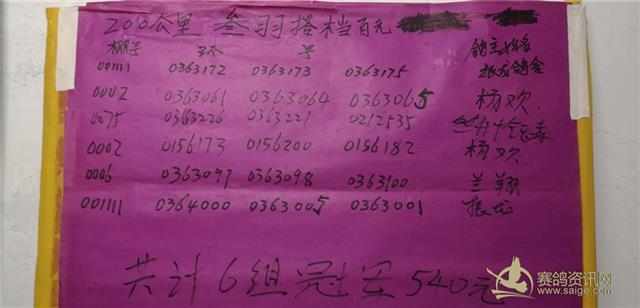 200公里 叁羽搭档百元
棚号 环 号 鸽主姓名
00111 0363172 0363173 0363175 振龙鸽舍
0002 0363061 0363064 0363065 杨欢
0075 0363226 0363221 0212535
0002 0156173 0156200 0156182 杨欢
0006 0363097 0363098 0363100 兰翔
001111 0364000 0363005 0363001 振龙
共计6组冠军540元
赛鸽资讯网
www.saige.com